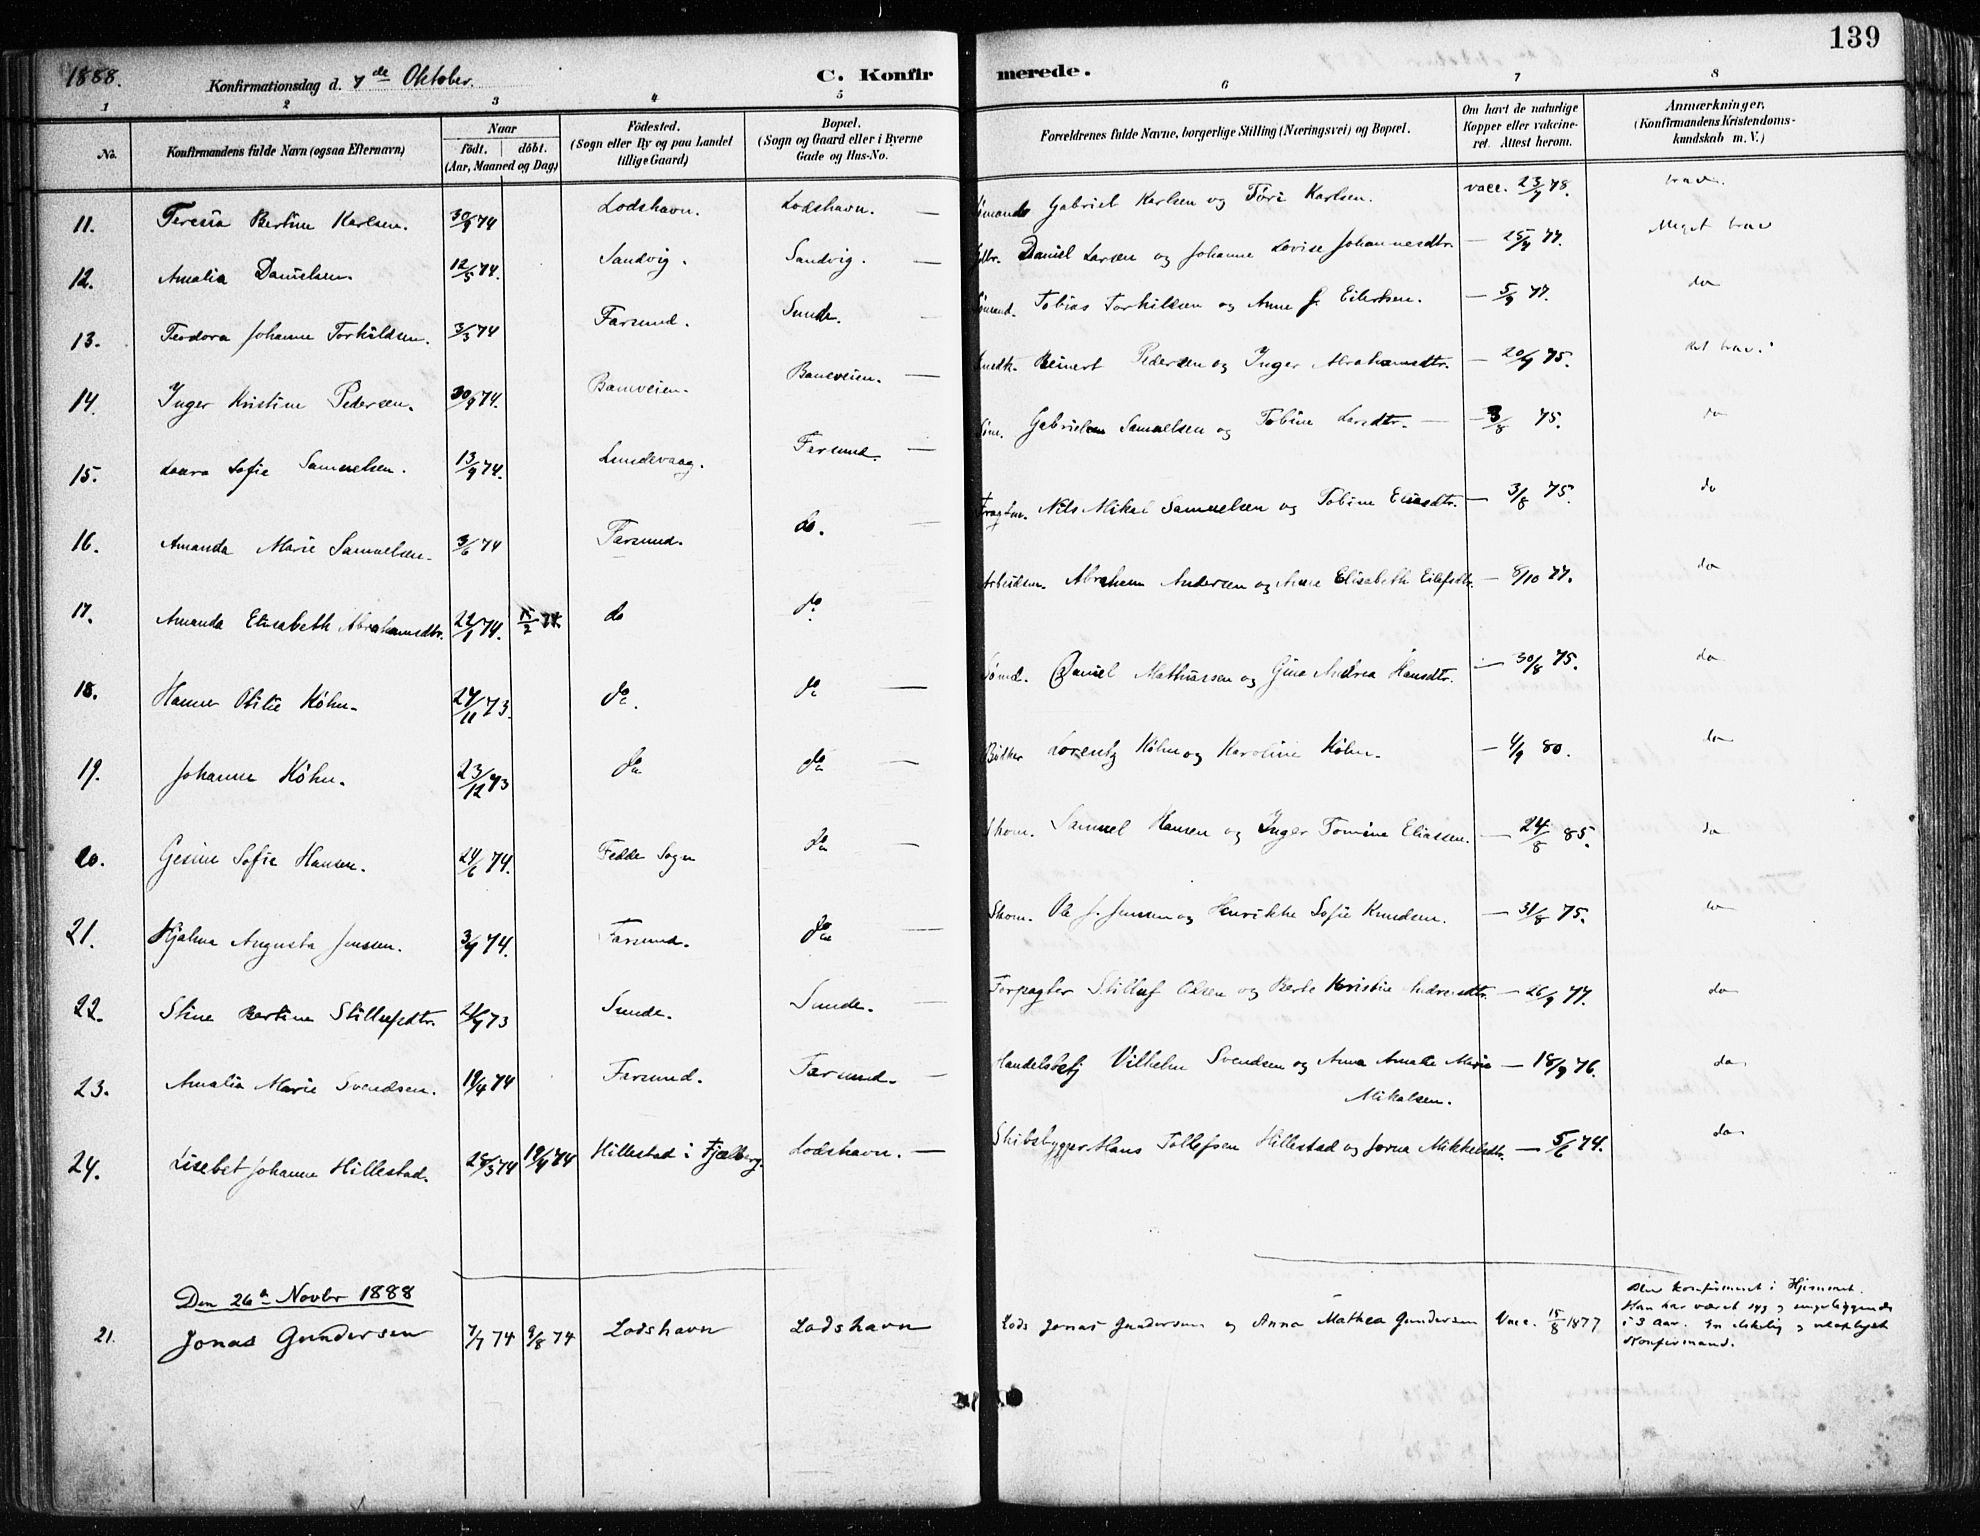 139
1888. Konfirmationsdag d. 7de Oktober. C. Konfirmerede.
1 2 3 4 5 6 7 8
No. Konfirmandens fulde Navn (ogsaa Efternavn) Naar födt. döbt. (Aar, Maaned og Dag) Födested. (Sogn eller By og paa Landet tillige Gaard) Bopæl. (Sogn og Gaard eller i Byerne Gade og Hus-No. Forældrenes fulde Navne, borgerlige Stilling (Næringsvei) og Bopæl. Om havt de naturlige Kopper eller vakcineret. Attest herom. Anmærkninger. (Konfirmandens Kristendomskundskab m. V.)
11. Teresia Bertine Karlsen. 30/9 74 Lodshavn. Lodshavn. — Gabriel Karlsen og Töri Karlsen. vacc. 23/7 78. brav.
12. Amalia Danielsen. 12/5 74. Sandvig. Sandvig. — Daniel Larsen og Johanne Lovise Johannesdtr. — 25/9 77. Meget brav
13. Teodora Johanne Torkildsen. 3/3 74 Farsund. Sunde. Tobias Torkildsen og Anne J. Eilertsen. — 5/9 77. do
14. Inger Kristine Pedersen. 30/9 74. Baneveien. Baneveien. — Reinert Pedersen og Inger Abrahamsdtr. — 20/9 75. brav.
15. Laura Sofie Samuelsen. 13/9 74. Lundevaag. Farsund. — Gabriel Samuelsen og Tobine Larsdtr. — 3/8 75. do
16. Amanda Marie Samuelsen. 3/6 74 Farsund. do. — Fragtm. Nils Mikal Samuelsen og Tobine Eliasdtr. — 3/8 75. do
17. Amanda Elisabeth Abrahamsdtr. 22/1 74. 15/2 74. do do Arbeidsm. Abraham Andersen og Anne Elisabeth Eilefsdtr. — 8/10 77. do
18. Hanne Otilie Köhn. 27/11 73. do. do — Sömd. Daniel Mathiassen og Gina Andrea Hansdtr. — 30/8 75. do
19. Johanne Köhn. 23/12 73 do do — Bödker Lorentz Köhn og Karoline Köhn. — 4/9 80. do
20. Gesine Sofie Hansen. 24/6 74. Fedde Sogn do — Skom. Samuel Hansen og Inger Tomine Eliassen. — 24/8 85. do
21. Hjalma Augusta Jensen. 3/9 74. Farsund. do — Skom. Ole J. Jensen og Henrikke Sofie Knudsen. — 31/8 75. do
22. Stine Bertine Stillufsdtr. 73 Sunde. Sunde. — Forpagter Stilluf Olsen og Berte Kristine Andreasdtr. — 26/9 77. do
23. Amalia Marie Svendsen. 19/4 74 Farsund. Farsund. — Handelsbetj Vilhelm Svendsen og Anna Amalie Marie — 18/9 76. do
Mikalsen.
24. Lisebet Johanne Hillestad. 28/3 74 19/4 74 Hillestad i Fjelberg. Lodshavn. — Skibsbygger Hans Tollefsen Hillestad og Jorna Mikkelsdtr. — 5/6 74. do
Den 26de Novbr 1888
21. Jonas Gundersen 7/7 74 9/8 74 Lodshavn Lodshavn Lods Jonas Gundersen og Anna Mathea Gundersen Vacc. 15/8 1877 Blev konfirmeret i Hjemmet.
Han har været syg og sengeliggende
i 3 Aar. En og veloplyst
Konfirmand.